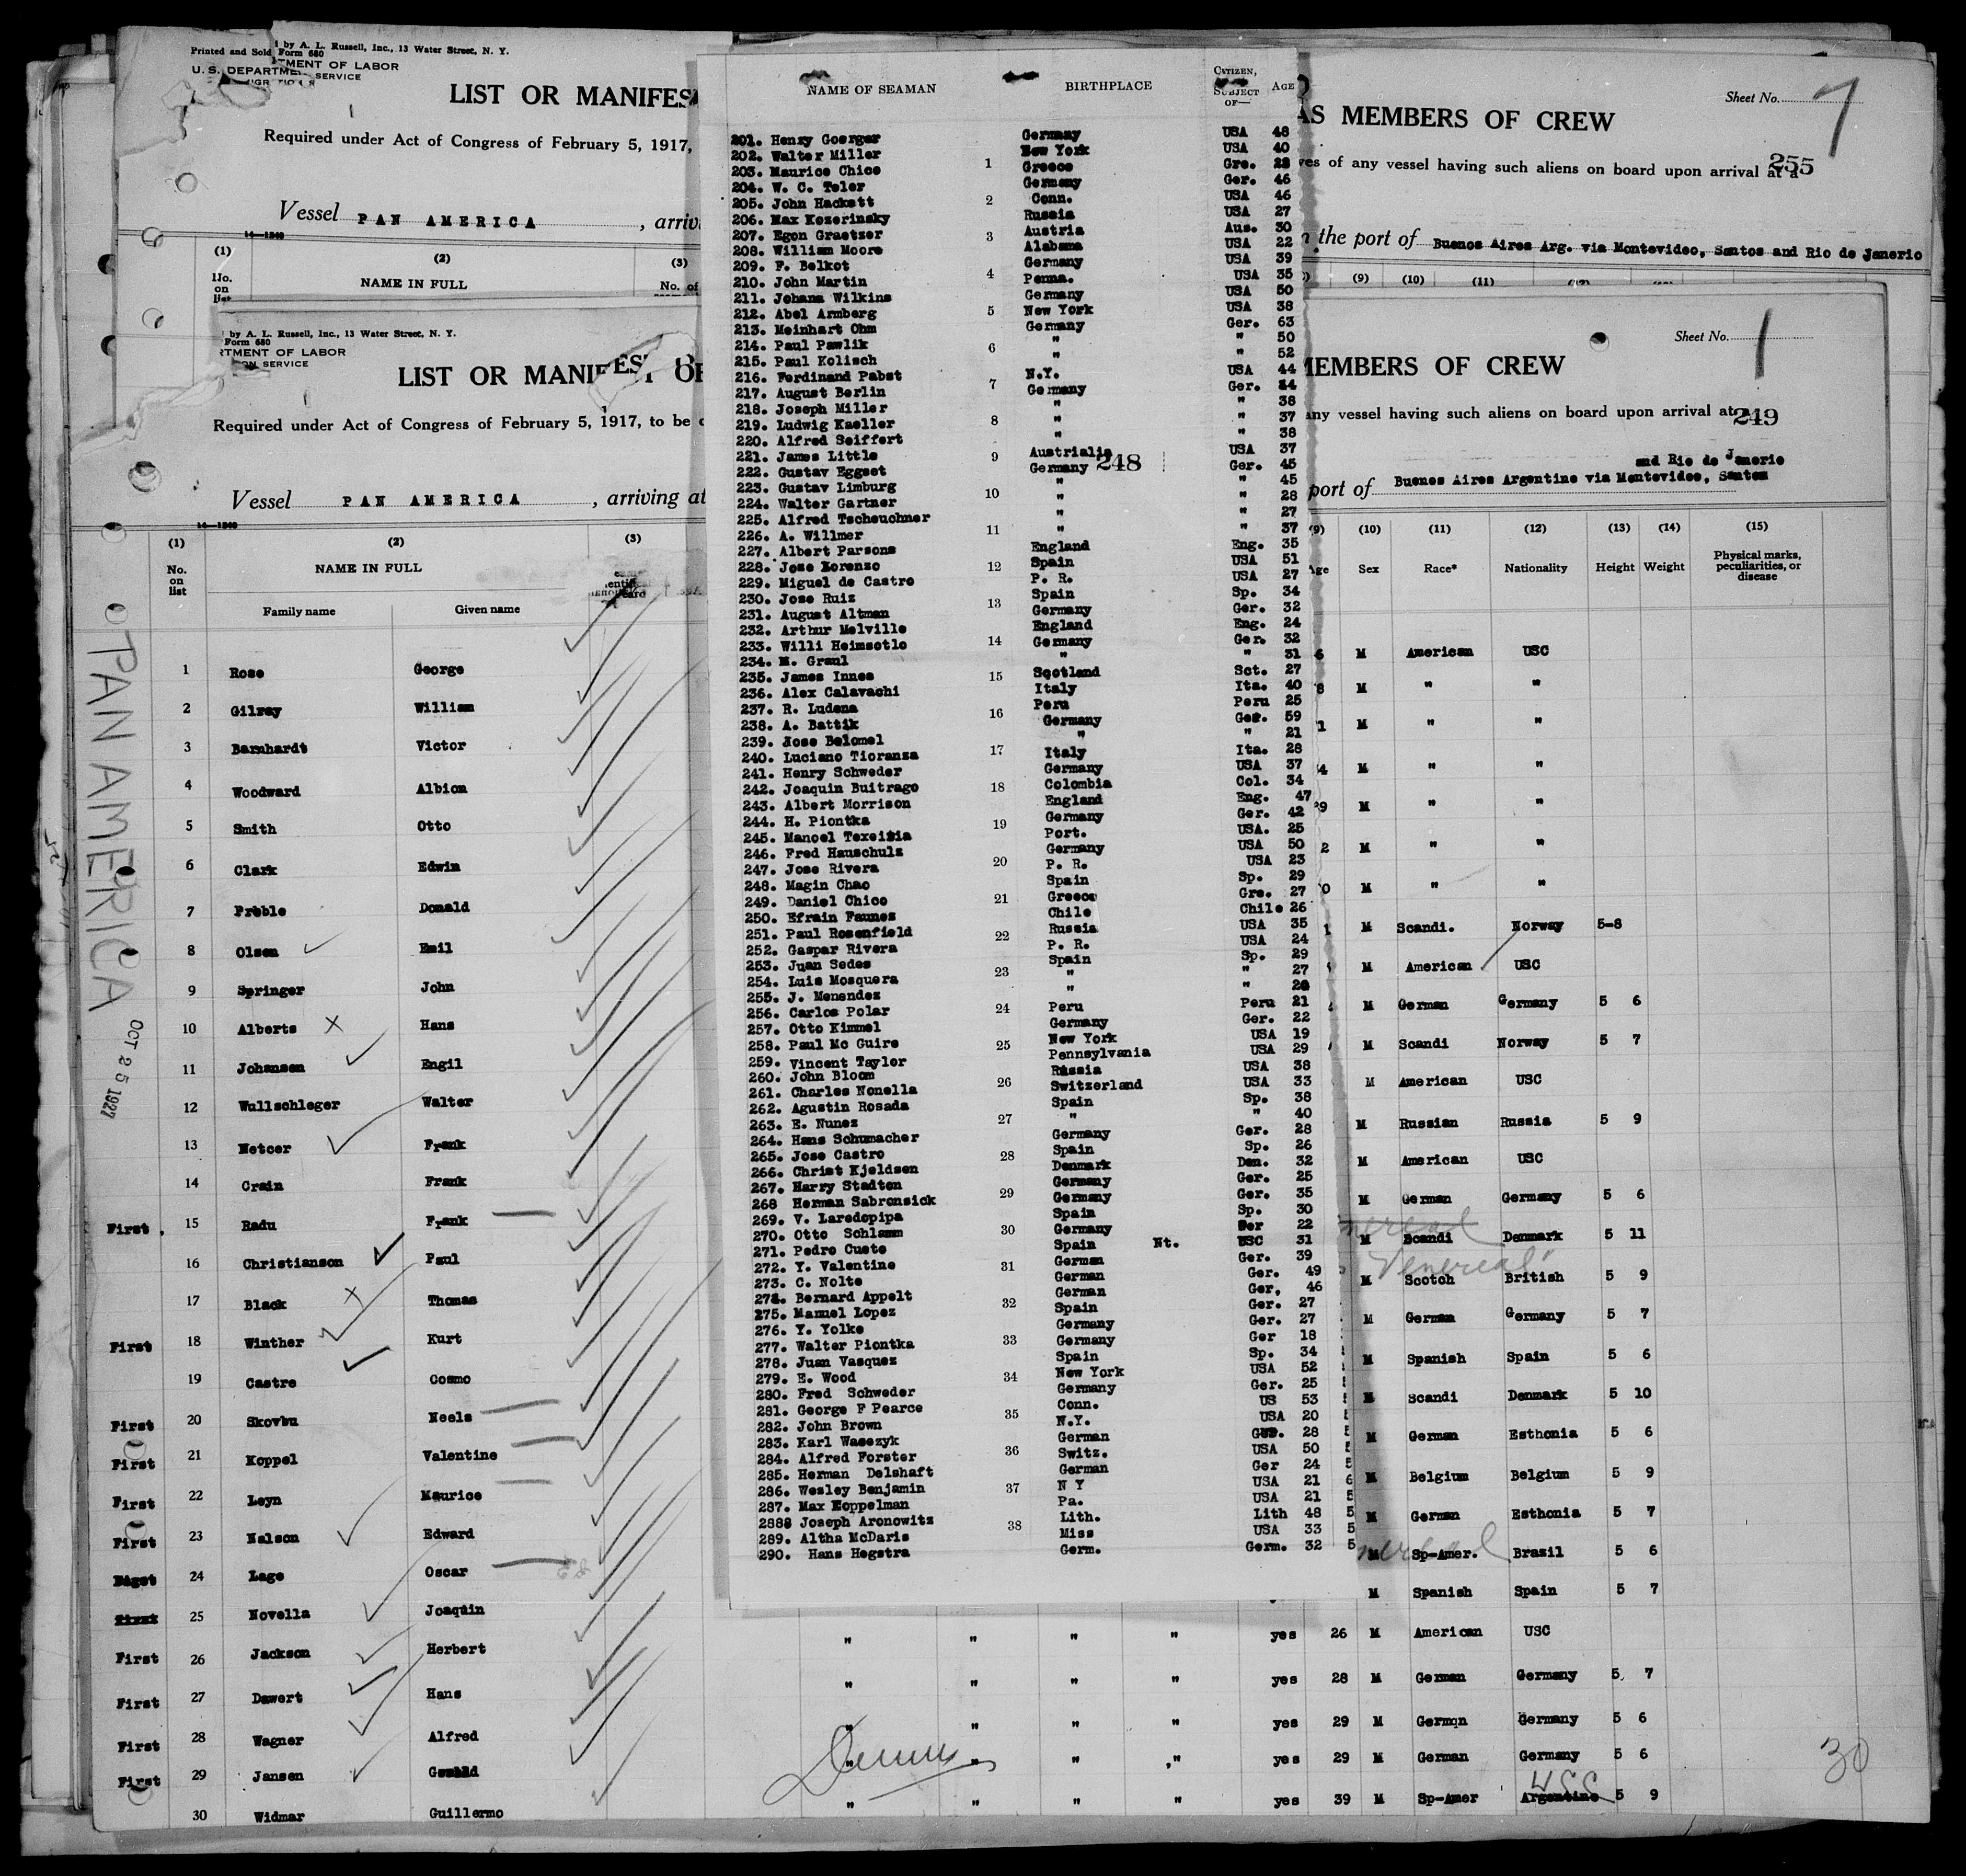 Printed and Sold by A. L. Russell, Inc., 13 Water Street, N. Y.
Form 680
U. S. DEPARTMENT OF LABOR
SERVICE
LIST OR MANIFES
Required under Act of Congress of February 5, 1917,
Vessel PAN AMERICA , arriv
14—1240
(1) (2) (3)
No. on list NAME IN FULL No. of
AS MEMBERS OF CREW
Sheet No. 7
ves of any vessel having such aliens on board upon arrival at a
255
the port of Buenos Aires Arg. via Montevideo, Santos and Rio de Janerio
(9) (10) (11)
by A. L. Russell, Inc., 13 Water Street, N. Y.
Form 680
RTMENT OF LABOR
ON SERVICE
LIST OR MANIFEST OF
Required under Act of Congress of February 5, 1917, to be
Vessel PAN AMERICA , arriving at
14—1240
MEMBERS OF CREW
Sheet No. 1
any vessel having such aliens on board upon arrival at
249
port of Buenos Aires Argentine via Montevideo, Santos and Rio de Janerio
(1) (2) (3)
No. on list NAME IN FULL
Family name Given name
(9) (10) (11) (12) (13) (14) (15)
Age Sex Race* Nationality Height Weight Physical marks, peculiarities, or disease
PAN AMERICA
OCT 25 1927
1 Rose George
2 Gilroy William
3 Barnhardt Victor
4 Woodward Albion
5 Smith Otto
6 Clark Edwin
7 Preble Donald
8 Olsen Emil
9 Springer John
10 Alberts Hans
11 Johansen Engil
12 Wullschleger Walter
13 Netcer Frank
14 Crain Frank
First 15 Radu Frank
16 Christianson Paul
17 Black Thomas
First 18 Winther Kurt
19 Castre Cosmo
First 20 Skovbu Neels
First 21 Koppel Valentine
First 22 Leyn Maurice
First 23 Nalson Edward
First 24 Lage Oscar
25 Novella Joaquin
First 26 Jackson Herbert
First 27 Dawert Hans
First 28 Wagner Alfred
First 29 Jansen
30 Widmar Guillermo
NAME OF SEAMAN BIRTHPLACE CITIZEN, SUBJECT OF— AGE
201. Henry Goerger Germany USA 48
202. Walter Miller New York USA 40
203. Maurice Chico Greece Gre. 28
204. W. C. Teler Germany Ger. 46
205. John Hackett Conn. USA 46
206. Max Kozerinsky Russia USA 27
207. Egon Graetzer Austria Aus. 30
208. William Moore Alabama USA 22
209. F. Belkot Germany USA 39
210. John Martin Penna. USA 35
211. Johann Wilkins Germany USA 50
212. Abel Armberg New York USA 38
213. Meinhart Ohm Germany Ger. 63
214. Paul Pawlik " " 50
215. Paul Kolisch " " 52
216. Ferdinand Pabst N.Y. USA 44
217. August Berlin Germany Ger. 44
218. Joseph Miller " " 38
219. Ludwig Kaeller " " 37
220. Alfred Seiffert " " 38
221. James Little Austrialia USA 37
222. Gustav Eggset Germany Ger. 45
248
223. Gustav Limburg " " 45
224. Walter Gartner " " 28
225. Alfred Tscheuchner " " 27
226. A. Willmer " " 37
227. Albert Parsons England Eng. 35
228. Jose Lorenzo Spain USA 51
229. Miguel de Castro P. R. USA 27
230. Jose Ruiz Spain Sp. 34
231. August Altman Germany Ger. 32
232. Arthur Melville England Eng. 24
233. Willi Heimsotlo Germany Ger. 32
234. M. Graul " " 31
235. James Innes Scotland Sct. 27
236. Alex Calavachi Italy Ita. 40
237. R. Ludena Peru Peru 25
238. A. Battik Germany Ger. 59
239. Jose Belomel " " 21
240. Luciano Tioranza Italy Ita. 28
241. Henry Schweder Germany USA 37
242. Joaquin Buitrago Colombia Col. 34
243. Albert Morrison England Eng. 47
244. H. Piontka Germany Ger. 42
245. Manoel Texeisia Port. USA. 25
246. Fred Hauschulz Germany USA 50
247. Jose Rivera P. R. USA 23
248. Magin Chao Spain Sp. 29
249. Daniel Chico Greece Gre. 27
250. Efrain Faunes Chile Chile 26
251. Paul Rosenfield Russia USA 35
252. Gaspar Rivera P. R. USA 24
253. Juan Sedes Spain Sp. 29
254. Luis Mosquera " " 27
255. J. Menendez " " 28
256. Carlos Polar Peru Peru 21
257. Otto Kimmel Germany Ger. 22
258. Paul Mc Guire New York USA 19
259. Vincent Taylor Pennsylvania USA 29
260. John Bloom Russia USA 38
261. Charles Nonella Switzerland USA 33
262. Agustin Rosada Spain Sp. 38
263. E. Nunez " " 40
264. Hans Schumacher Germany Ger. 28
265. Jose Castro Spain Sp. 26
266. Christ Kjeldsen Denmark Den. 32
267. Harry Stadten Germany Ger. 25
268 Herman Sabronsick Germany Ger. 35
269. V. Laredopipa Spain Sp. 30
270. Otto Schlamm Germany Ger 22
271. Pedro Cueto Spain Nt. USC 31
272. Y. Valentine German Ger. 39
273. C. Nolte German Ger. 49
274. Bernard Appelt German Ger, 46
275. Manuel Lopez Spain Ger. 27
276. Y. Yolke Germany Ger. 27
277. Walter Piontka Germany Ger 18
278. Juan Vasquez Spain Sp. 34
279. E. Wood New York USA 52
280. Fred Schweder Germany Ger. 25
281. George F Pearce Conn. US 53
282. John Brown N.Y. USA 20
283. Karl Wasezyk German Ger. 28
284. Alfred Forster Switz. USA 50
285. Herman Delshaft German Ger 24
286. Wesley Benjamin N Y USA 21
287. Max Koppelman Pa. USA 21
2888 Joseph Aronowitz Lith. Lith 48
289. Altha McDaris Miss USA 33
290. Hans Hegstra Germ. Germ. 32
1
2
3
4
5
6
7
8
9
10
11
12
13
14
15
16
17
18
19
20
21
22
23
24
25
26
27
28
29
30
31
32
33
34
35
36
37
38
6 M American USC
8 M " "
1 M " "
4 M " "
9 M " "
2 M " "
0 M " "
1 M Scandi. Norway 5-8
M American USC
M German Germany 5 6
M Scandi Norway 5 7
M American USC
M Russian Russia 5 9
M American USC
M German Germany 5 6
M Scandi Denmark 5 11
Venereal
M Scotch British 5 9
M German Germany 5 7
M Spanish Spain 5 6
M Scandi Denmark 5 10
M German Esthonia 5 6
M Belgium Belgium 5 9
M German Esthonia 5 7
M Sp-Amer. Brazil 5 6
M Spanish Spain 5 7
" " " " yes 26 M American USC
" " " " yes 28 M German Germany 5 7
" " " " yes 29 M German Germany 5 6
" " " " yes 29 M German Germany 5 6
" " " " yes 39 M Sp-Amer Argentine 5 9
USC
30